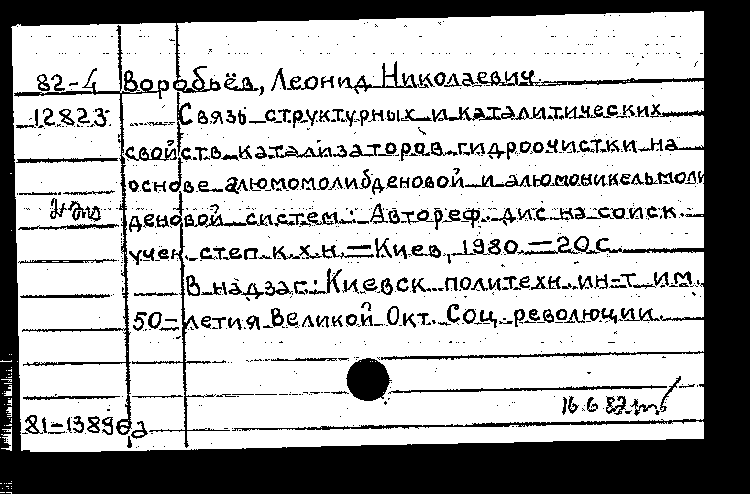 82-4 Воробьёв, Леонид Николаевич
12823 Связь структурных и каталитических
свойств катализаторов гидроочистки на
основе алюмомолибденовой и алюмоникельмоли
деновой систем: Автореф. дис на соиск.
учен. степ. к.х.н. — Киев, 1980. — 20 с.
В надзаг: Киевск политехн. ин-т им.
50-летия Великой Окт. Соц. революции.
16.6.82